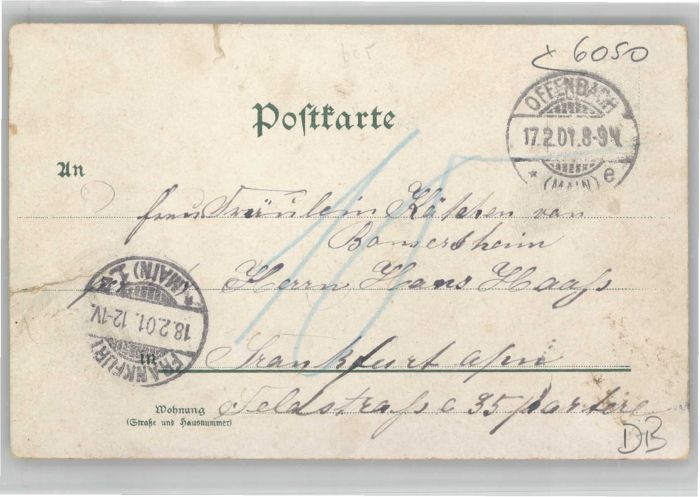 x 6050
OFFENBACH
17.2.01.8-9 N.
* (MAIN) e
Postkarte
An
Fräulein Käthchen von
Bonsersheim
Herrn Hans Haaß
(MAIN)
18.2.01. 12-1V.
FRANKFURT
in
Frankfurt a/m
Wohnung
Feldstraße 35 partere
(Straße und Hausnummer)
DB